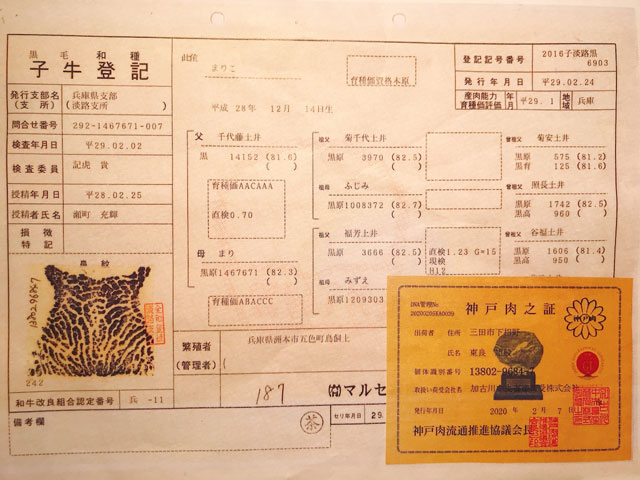 黒毛和種
子牛登記
此牛
まりこ
育種価資格本原
登記記号番号
2016子淡路黒
6903
発行年月日
平29.02.24
産肉能力 年
育種価評価 月
平29.1
地域
兵庫
発行支部名
(支所)
兵庫県支部
(淡路支所)
平成 28年 12月 14日生
問合せ番号
292-1467671-007
検査年月日
平29.02.02
検査委員
記虎 貴
授精年月日
平28.02.25
授精者氏名
瀬町 充輝
損徴
特記
父
千代藤土井
黒 14152 (81.6)
育種価AACAAA
直検0.70
母 まり
黒原1467671 (82.3)
育種価ABACCC
祖父
菊千代土井
黒原 3970 (82.5)
祖母
ふじみ
黒原1008372 (82.7)
祖父
福芳土井
黒原 3666 (82.5)
祖母
みずえ
黒原1209303
曾祖父
菊安土井
黒原 575 (81.2)
黒育 125 (81.6)
曾祖父
照長土井
黒原 1742 (82.5)
黒高 960
曾祖父
谷福土井
黒原 1606 (81.4)
直検1.23 G=15
現検
H12
鼻紋
1380296847
242
繁殖者
(管理者)
兵庫県洲本市五色町鳥飼上
和牛改良組合認定番号
兵 -11
187
マルセ
備考欄
セリ年月日
29.
DNA管理No.
神戸肉之証
出荷者 住所 三田市下
氏名 東良
個体識別番号 13802-9684-7
取扱い荷受会社名 加古川
株式会社
発行年月日 2020年 2月 7日
神戸肉流通推進協議会長